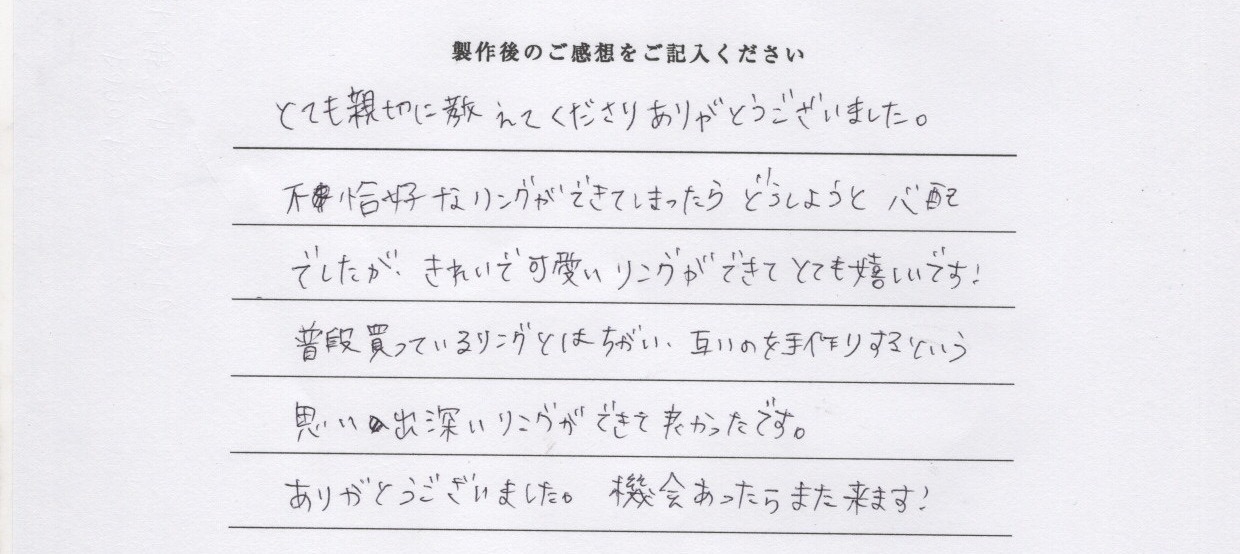 製作後のご感想をご記入ください
とても親切に教えてくださりありがとうございました。
不恰好なリングができてしまったらどうしようと心配
でしたが、きれいで可愛いリングができてとても嬉しいです!
普段買っているリングとはちがい、互いのを手作りするという
思い出深いリングができて良かったです。
ありがとうございました。 機会あったらまた来ます!